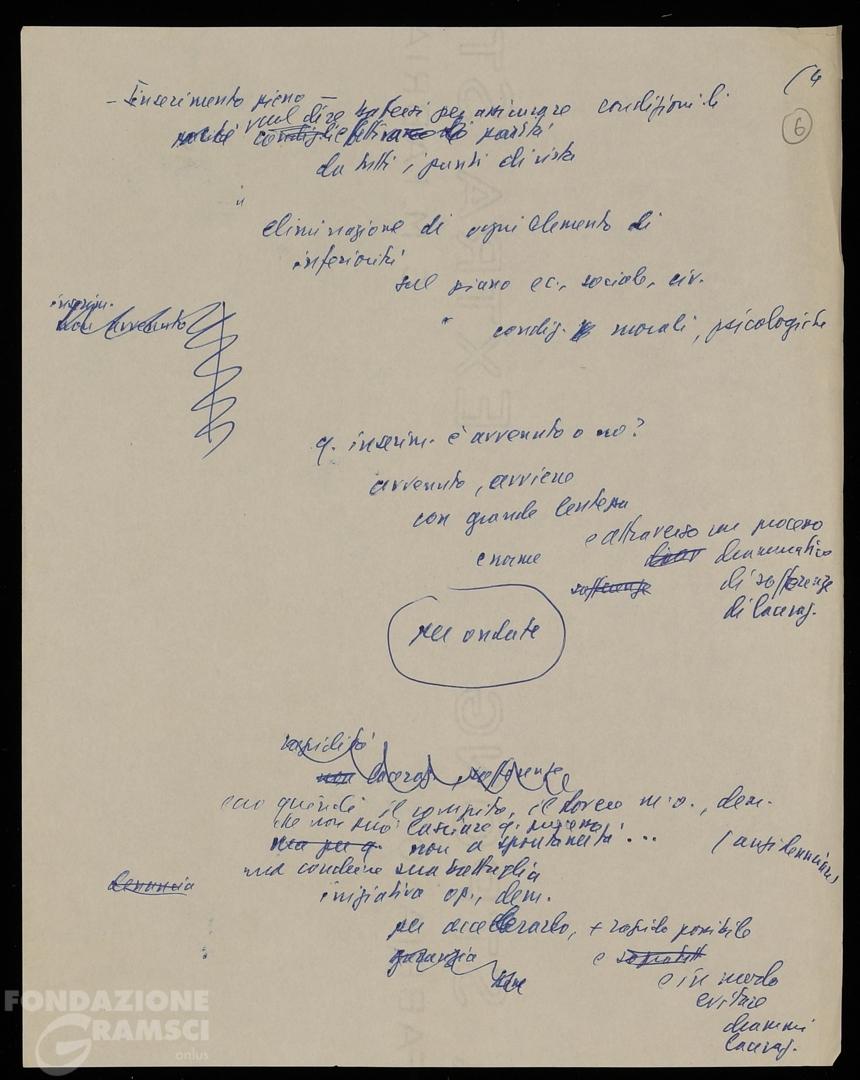 (4
6
- Inserimento pieno -
vuol dire battersi per assicurare condizioni di
parità
da tutti i punti di vista
"
eliminazione di ogni elemento di
inferiorità
sul piano ec., sociale, civ.
" condiz. morali, psicologiche
inserim.
non avvenuto
q. inserim. è avvenuto o no?
avvenuto, avviene
con grande lentezza
enorme
e attraverso un processo
drammatico
sofferenze di sofferenze
di laceraz.
per ondate
rapidità
non laceraz., sofferenze
ecco quindi il compito, il dovere m.o., dem.
che non può lasciare q. processo
ma per q. non a spontaneità ...
ma condurre sua battaglia
denuncia
iniziativa op., dem.
per accelerarlo, + rapido possibile
garanzia e
e in modo
evitare
drammi
laceraz.
FONDAZIONE
GRAMSCI
onlus